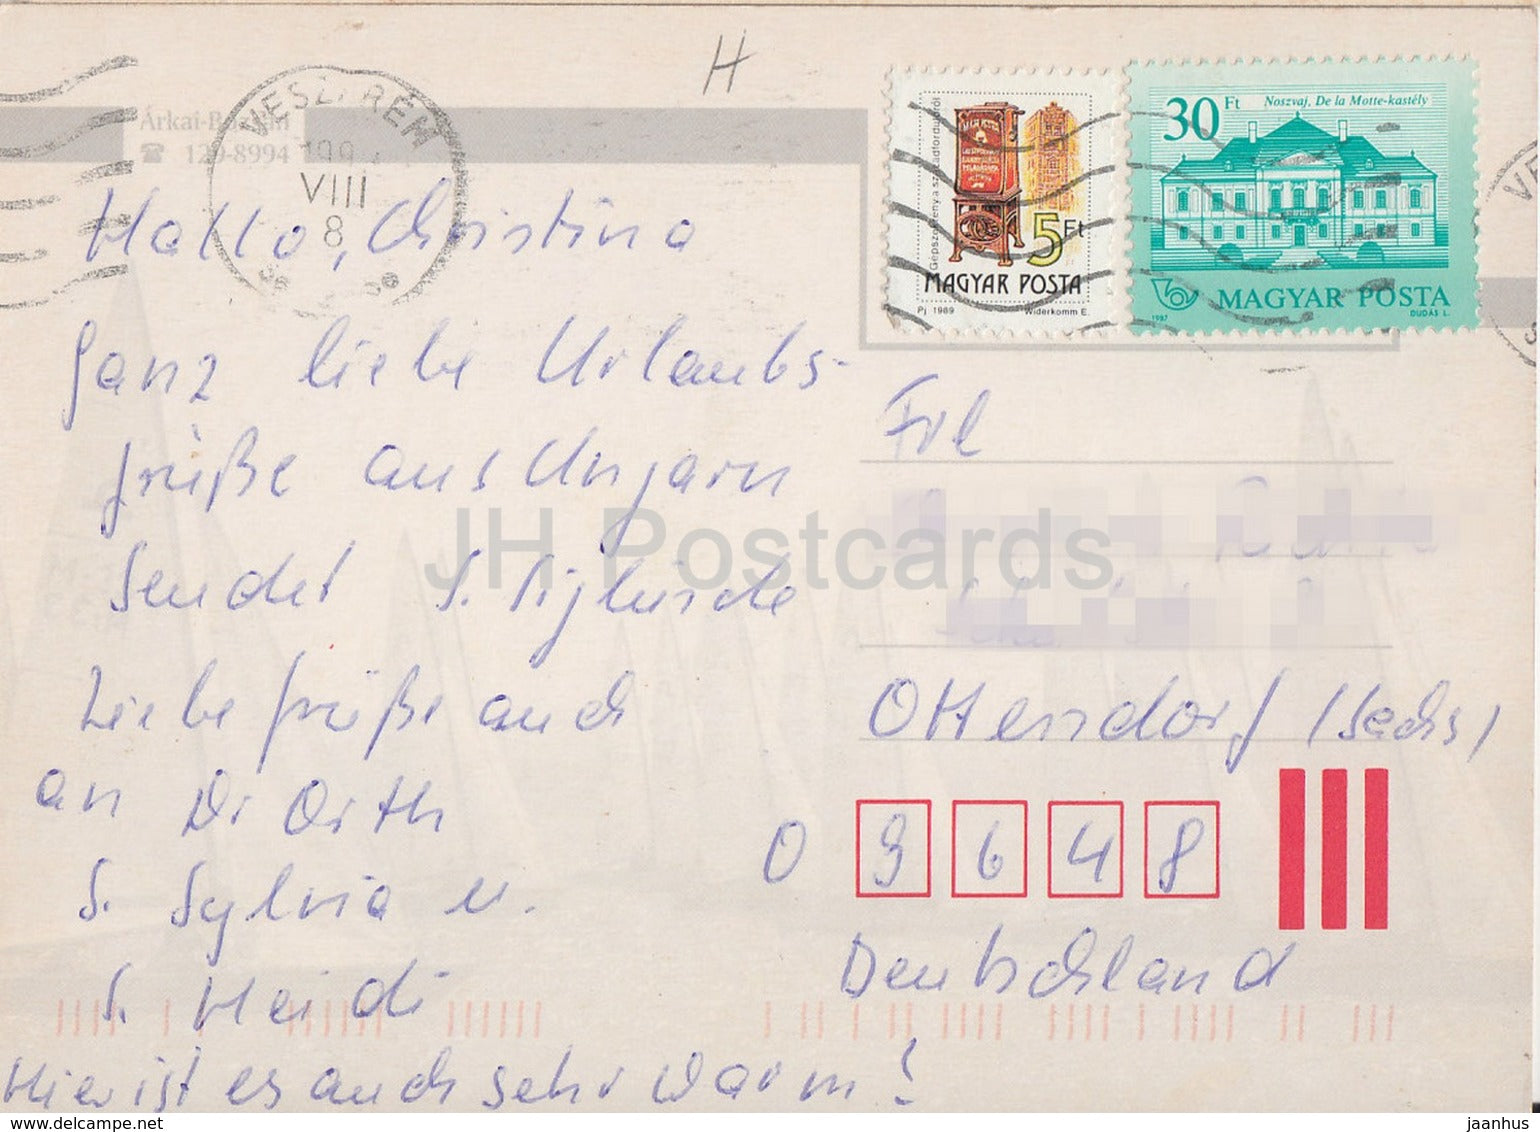 H
Árkai-
☎ 129-8994
VESZPRÉM
199
VIII
8
Gépszekrény a századfordulóról
5 Ft
MAGYAR POSTA
Pj 1989 Widerkomm E.
30 Ft Noszvaj, De la Motte-kastély
MAGYAR POSTA
1987 DUDÁS L.
Hallo, Christina
Ganz liebe Urlaubs-
grüße aus Ungarn
Sendet S. Siglinde
Liebe grüße auch
an Dr Orth
S. Sylvia u.
S. Heidi
Hier ist es auch sehr warm!
Frl
Ottendorf (Sachs)
O 9648
Deutschland
JH Postcards
www.delcampe.net
jaanhus